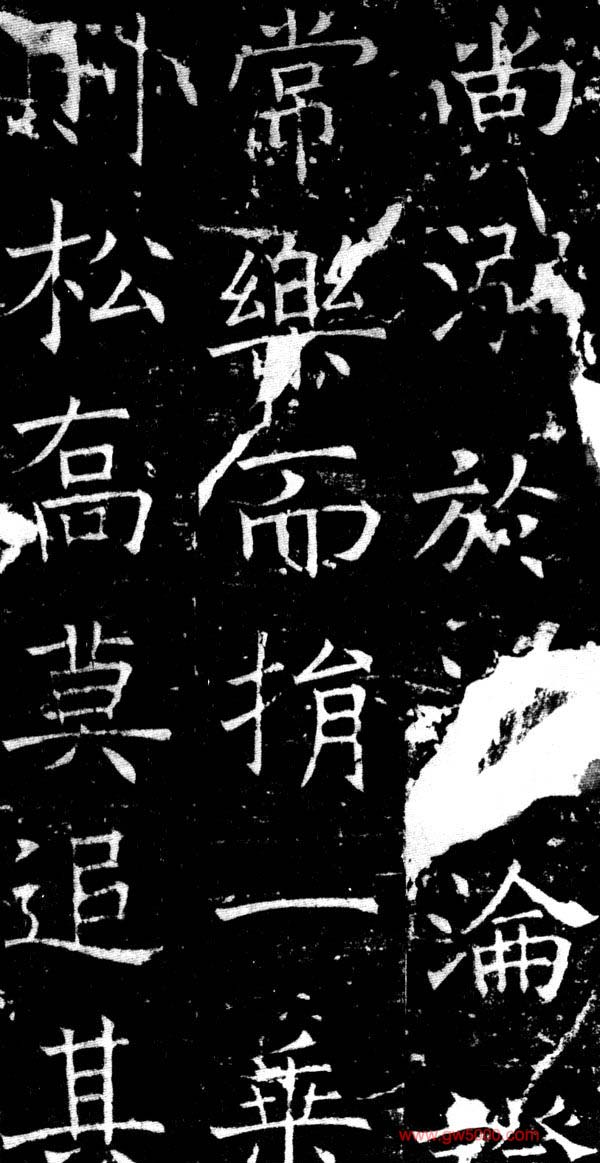 尚溺於淪
常樂而捐一乗
松高莫追其
www.gw5000.com